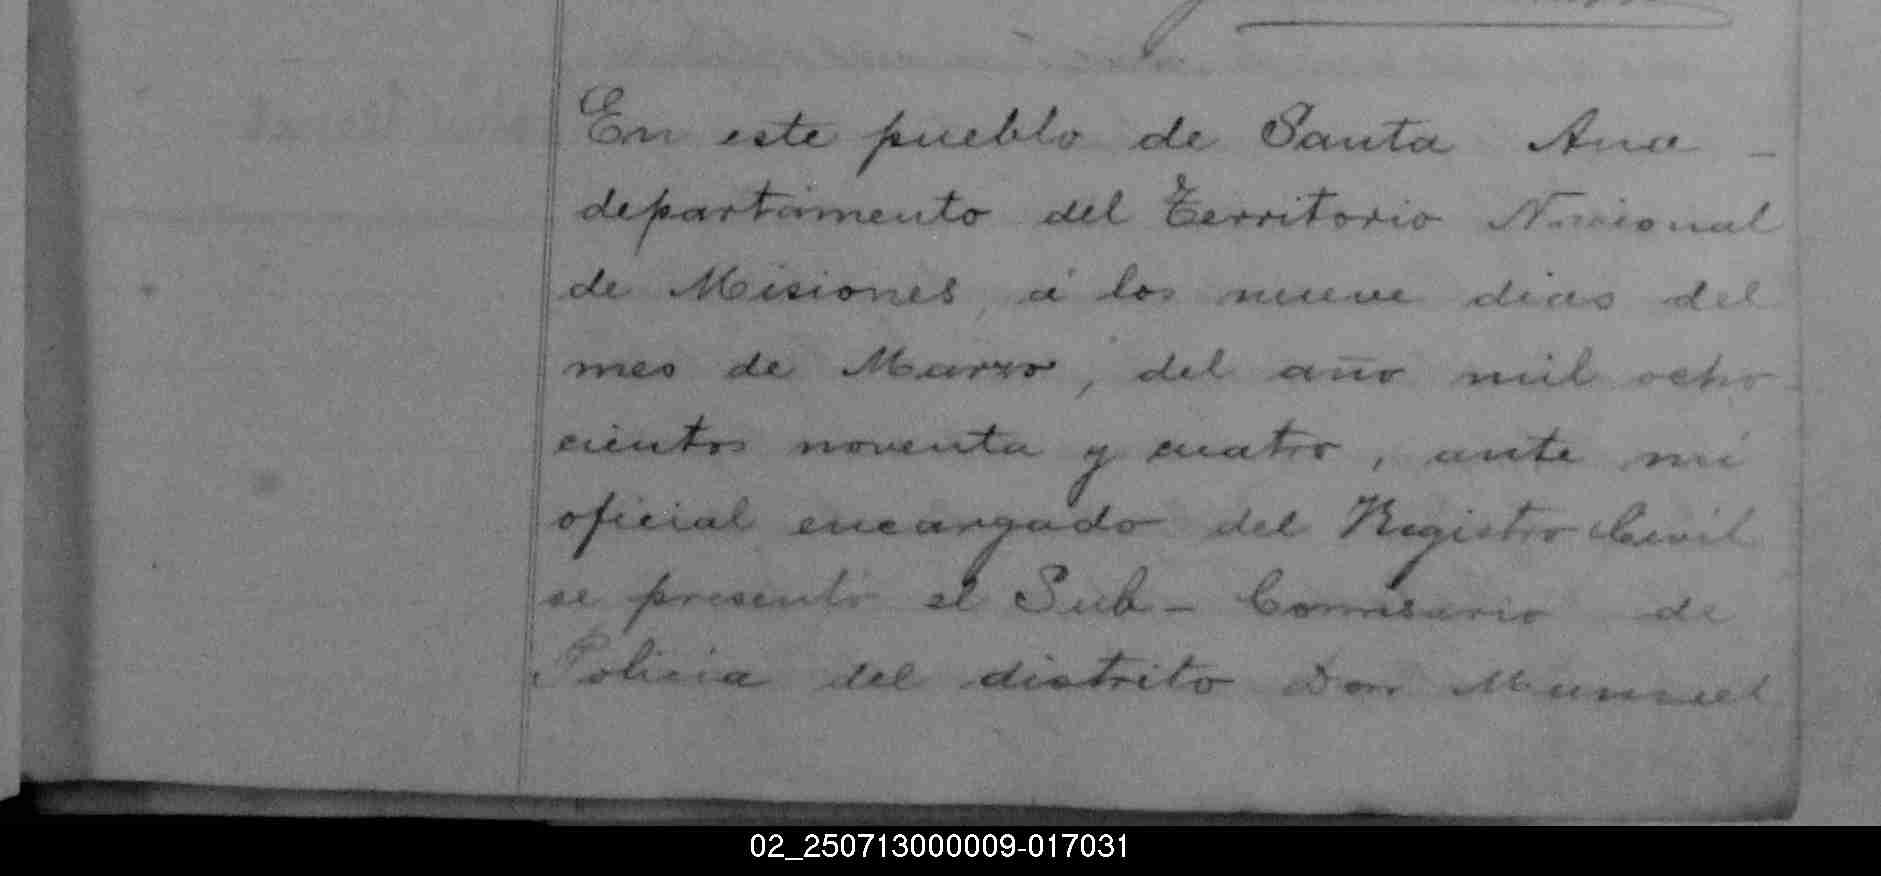 En este pueblo de Santa Ana -
departamento del Territorio Nacional
de Misiones, á los nueve dias del
mes de Marzo, del año mil ocho-
cientos noventa y cuatro, ante mi
oficial encargado del Registro Civil
se presentó el Sub-Comisario de
Policia del distrito Don Manuel
02_250713000009-017031